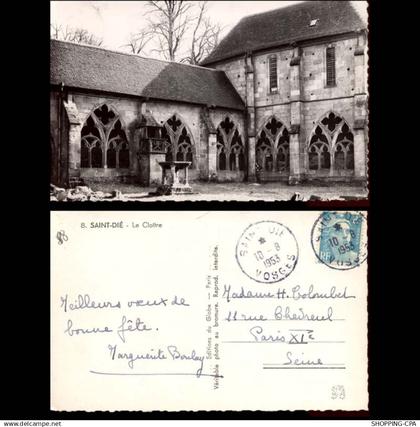 8. SAINT-DIÉ - Le Cloître
88
Meilleurs vœux de
bonne fête.
Marguerite Boulay
Editions du Globe — Paris
Véritable photo au bromure. Reprod. interdite.
SAINT-DIÉ
10-8
1953
VOSGES
1953
VOSGES
Madame H. Coloubel
11 rue Chevreul
Paris XIe
Seine
www.shopping-cpa.com
(c) SHOPPING-CPA